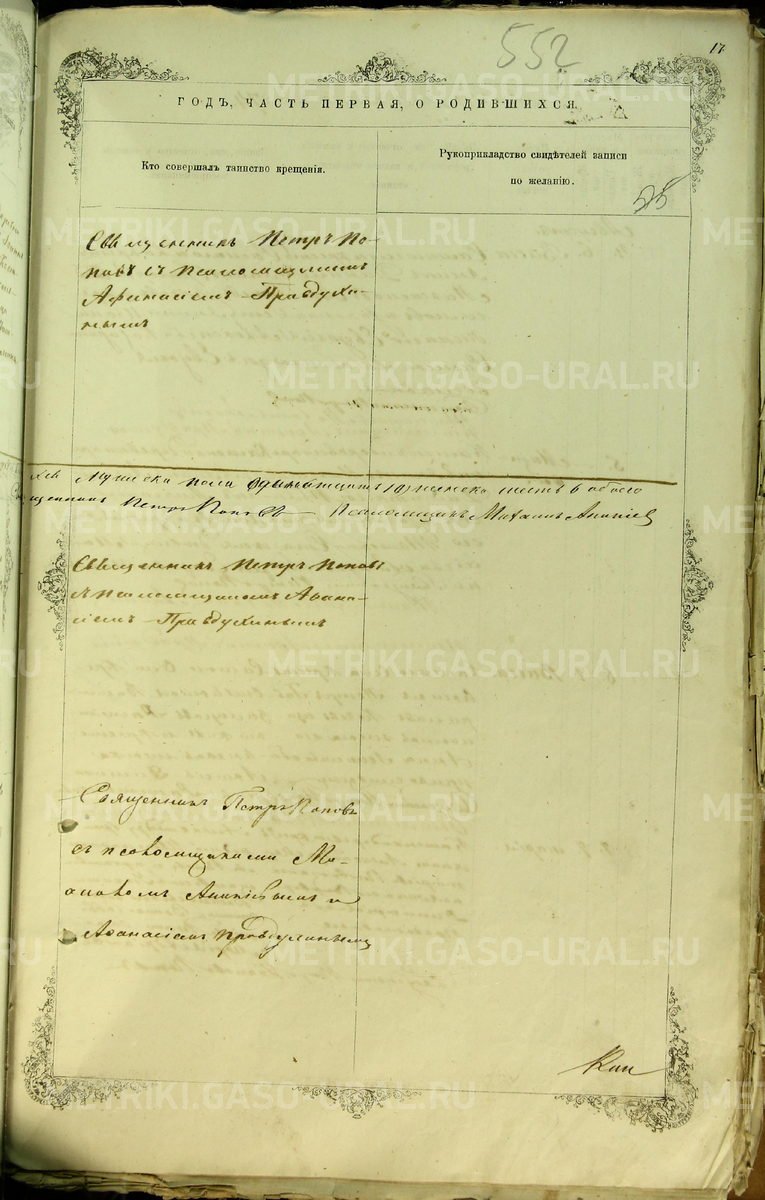 552
17
ГОДЪ, ЧАСТЬ ПЕРВАЯ, О РОДИВШИХСЯ.
Кто совершалъ таинство крещенія.
Рукоприкладство свидѣтелей записи
по желанію.
55
Священникъ Петръ По-
повъ съ псаломщикомъ
Афанасіемъ Правдухи-
нымъ
мужска пола женска шесть 6 обоего
Священникъ Петръ Поповъ Псаломщикъ Михаилъ Ананіев
Священникъ Петръ Поповъ
съ псаломщикомъ Афана-
сіемъ Правдухинымъ
Священникъ Петръ Поповъ
съ псаломщиками Ми-
хаиломъ Ананіевымъ и
Афанасіемъ Правдухинымъ
METRIKI.GASO-URAL.RU